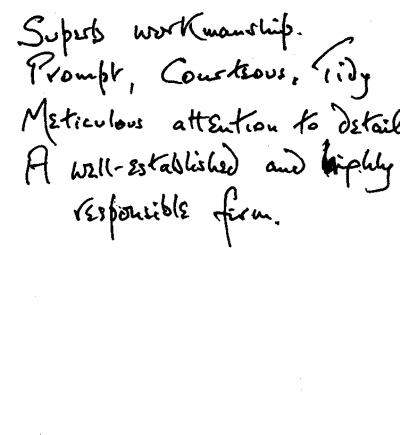 Superb workmanship.
Prompt, Courteous, Tidy
Meticulous attention to detail
A well-established and highly
responsible firm.